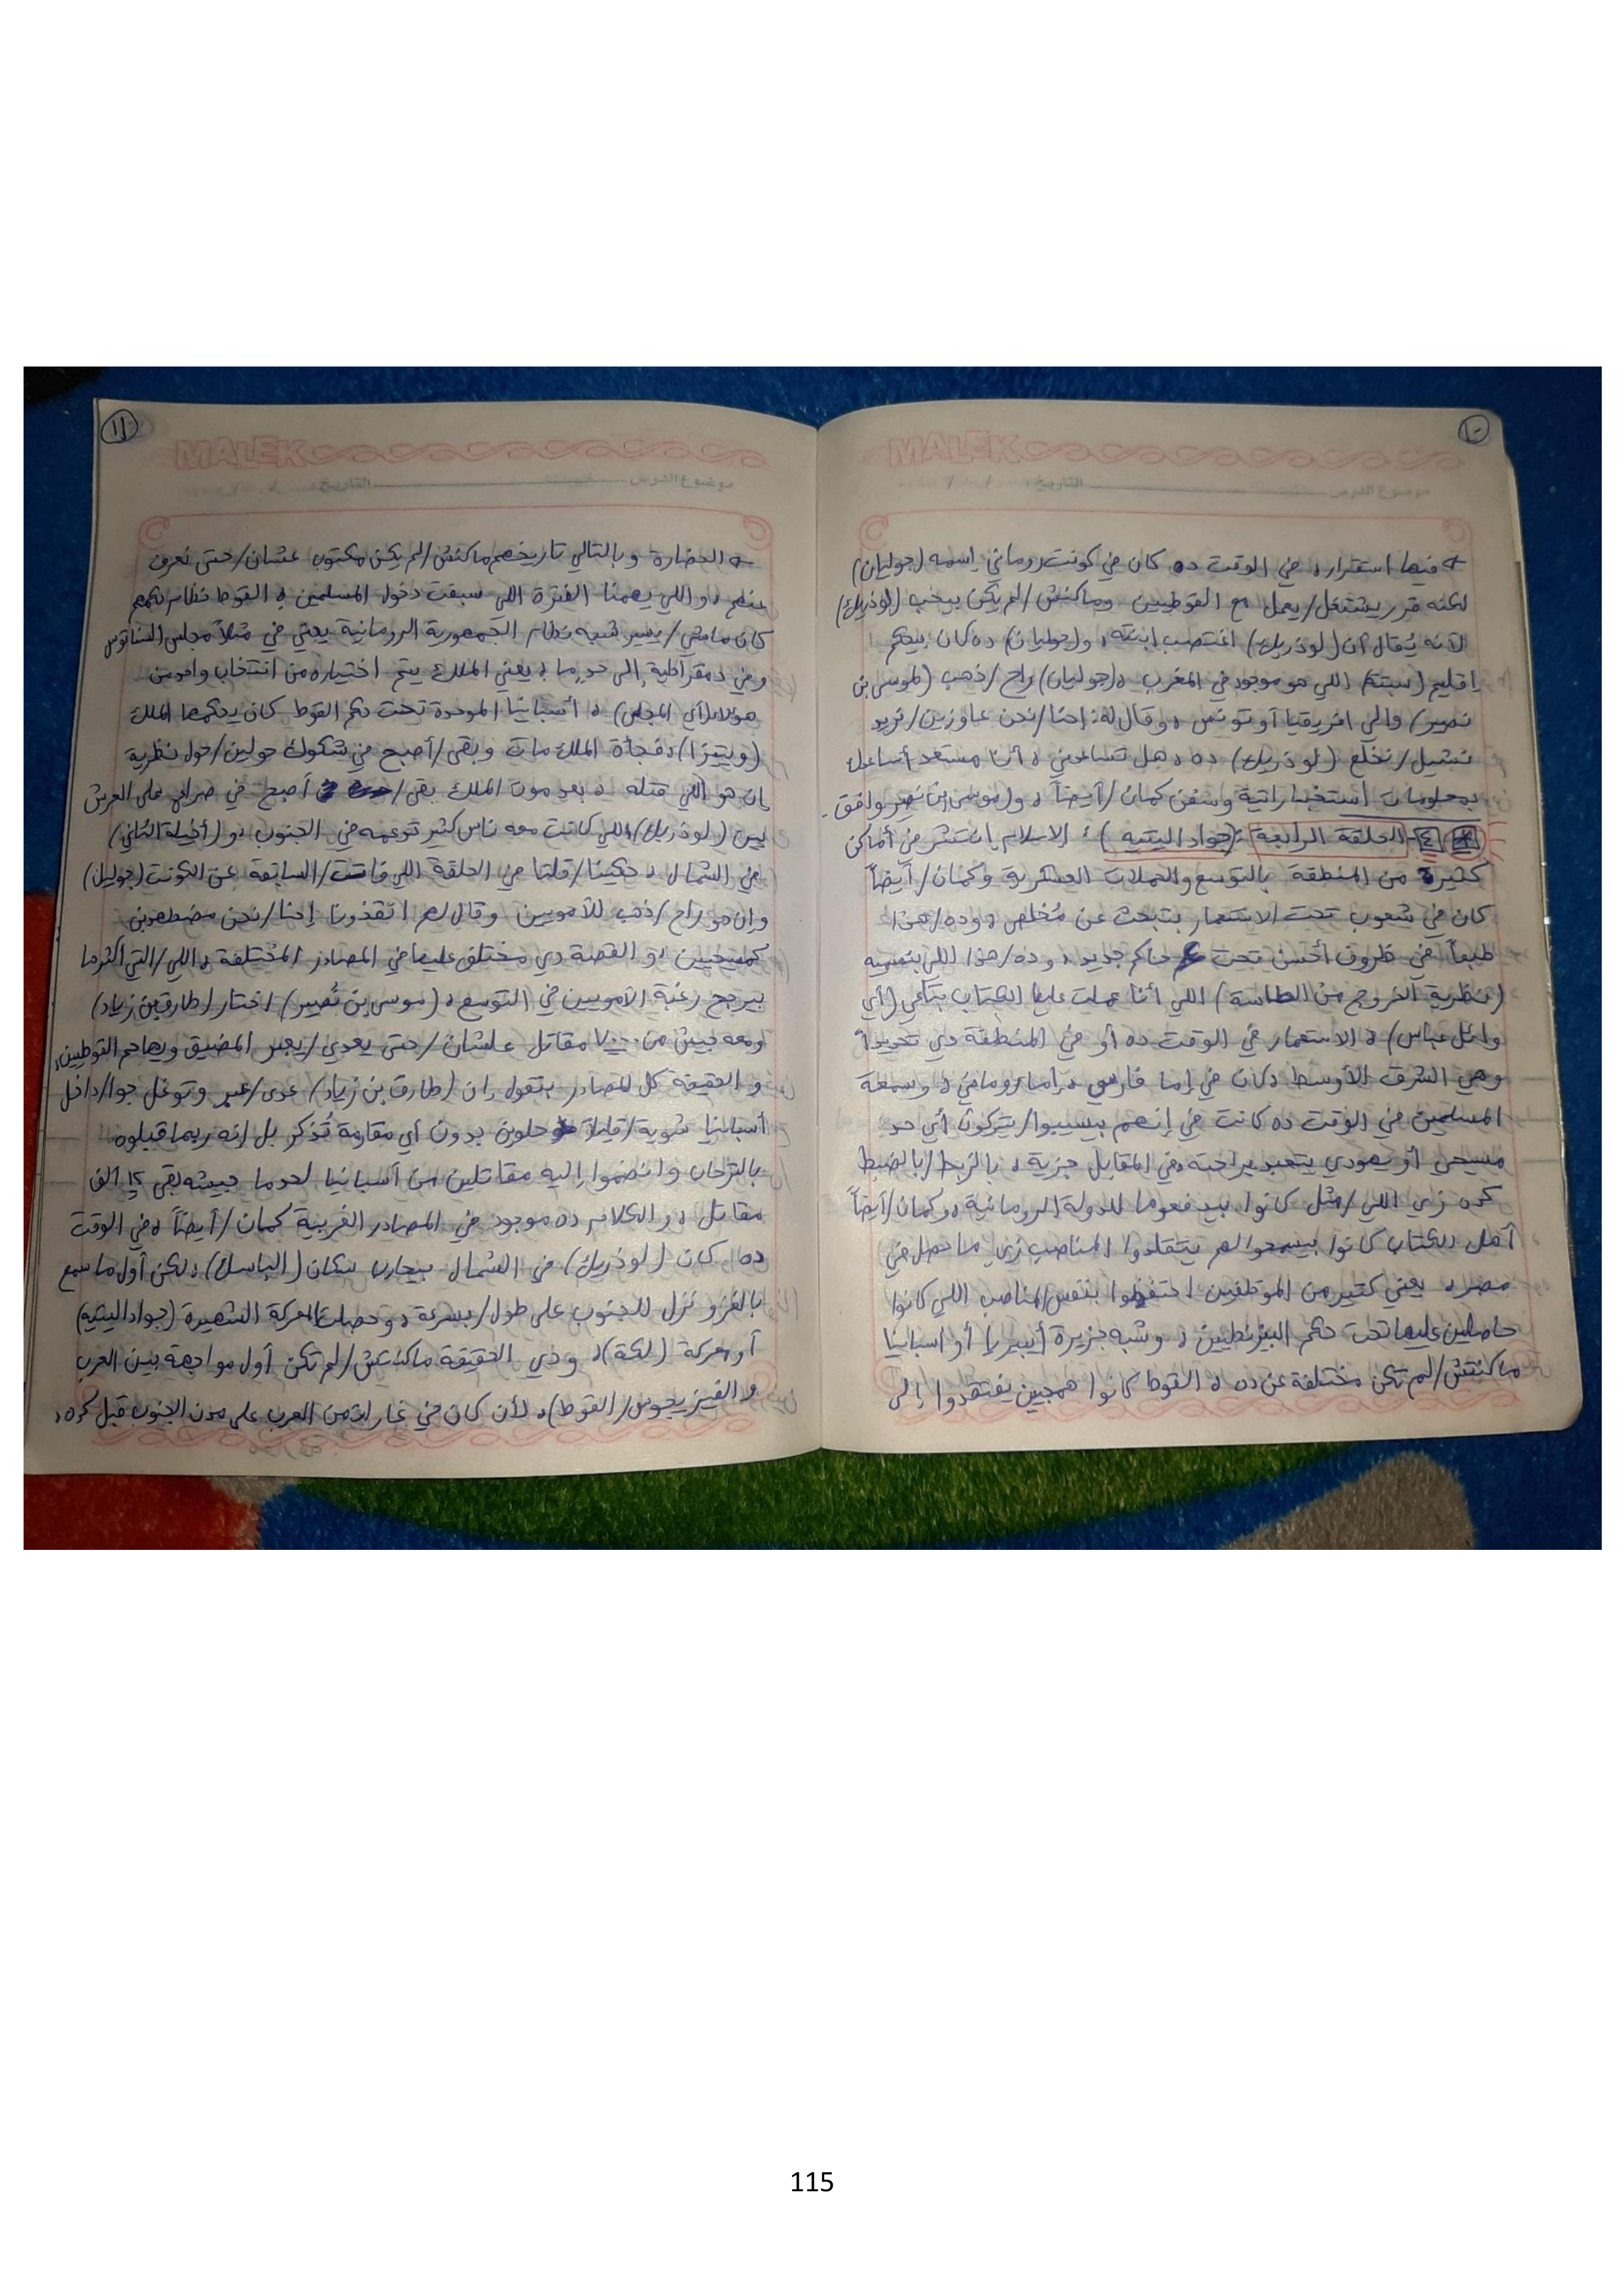 ١٠
MALEK
موضوع الدرس التاريخ: / /
فيها استقرار، في الوقت ده كان في كونت روماني اسمه (جوليان)
لكنه قرر يشتغل/يعمل مع القوطيين وماكنش/لم يكن بيحب (لوذريك)
لأنه يُقال أن (لوذريك) اغتصب ابنته، و(جوليان) ده كان بيحكم
إقليم (سبتة) اللي هو موجود في المغرب، (جوليان) راح/ذهب (لموسى بن
نصير) والي افريقيا أو تونس، وقال له: إحنا/نحن عاوزين/نريد
نشيل/نخلع (لوذريك) ده، هل تساعدني، أنا مستعد أساعدك
بمعلومات استخباراتية وسفن كمان/أيضاً، و(موسى ابن نصير) وافق.
٤- الحلقة الرابعة: (جواد اليتيه): الإسلام انتشر في أماكن
كثيرة من المنطقة بالتوسع والحملات العسكرية وكمان/أيضاً
كان في شعوب تحت الاستعمار بتبحث عن مُخلص، وده/هذا
طبعاً في ظروف أحسن تحت حاكم جديد، وده/هذا اللي بنسميه
(نظرية الخروج من الطاسة) اللي أنا عملت عليها الكتاب بتاعي (أي
وائل عباس)، الاستعمار في الوقت ده أو في المنطقة دي تحديداً
وهي الشرق الأوسط كان في إما فارسي، إما روماني، وسمعة
المسلمين في الوقت ده كانت في إنهم بيسيبوا/يتركون أي حد
مسيحي أو يهودي يتعبد براحته، في المقابل جزية، بالزبط/بالضبط
كده زي اللي/مثل كانوا بيدفعوها للدولة الرومانية، وكمان/أيضاً
أهل الكتاب كانوا بيسمحوا لهم يتقلدوا المناصب زي ما حصل في
مصر، يعني كتير من الموظفين احتفظوا بنفس المناصب اللي كانوا
حاصلين عليها تحت حكم البيزنطيين، وشبه جزيرة أيبيريا أو اسبانيا
ماكنتش/لم تكن مختلفة عن ده، القوط كانوا همجيين يفتقدوا إلى
١١
MALEK
موضوع الدرس التاريخ: / /
الحضارة وبالتالي تاريخهم ماكنش/لم يكن مكتوب عشان/حتى نعرف
عنهم، واللي يهمنا الفترة اللي سبقت دخول المسلمين، القوط نظام حكمهم
كان ماشي/يسير شبه نظام الجمهورية الرومانية يعني في مثلاً مجلس السناتوس
وفي دمقراطية إلى حدٍ ما، يعني الملك يتم اختياره من انتخاب واحد من
هؤلاء (أي المجلس)، أسبانيا الموحدة تحت حكم القوط كان يحكمها الملك
(ويتيزا)، فجأة الملك مات وبقى/أصبح في شكوك حولين/حول نظرية
إن هو اللي قتله، بعد موت الملك بقى/أصبح في صراع على العرش
بين (لوذريك) اللي كانت معه ناس كثير تدعمه في الجنوب، و(أخيلة الثاني)
في الشمال، حكينا/قلنا في الحلقة اللي فاتت/السابقة عن الكونت (جوليان)
وإن هو راح/ذهب للأمويين وقال لهم انقذونا إحنا/نحن مضطهدين
كمسيحيين، والقصة دي مختلف عليها في المصادر المختلفة، اللي/التي أكثرها
بيرجح رغبة الأمويين في التوسع، (موسى بن نُصير) اختار (طارق بن زياد)
ومعه جيش من ٧٠٠٠ مقاتل علشان/حتى يعدي/يعبر المضيق ويهاجم القوطيين،
والحقيقة كل المصادر بتقول إن (طارق بن زياد) عدى/عبر وتوغل جوا/داخل
أسبانيا شوية/قليلاً حلوين بدون أي مقاومة تُذكر بل إنه ربما قبلوه
بالترحاب وانضموا إليه مقاتلين من أسبانيا لحد ما جيشه بقى ١٢ ألف
مقاتل، والكلام ده موجود في المصادر الغربية كمان/أيضاً، في الوقت
ده كان (لوذريك) في الشمال بيحارب سكان (الباسك)، لكن أول ما سمع
بالغزو نزل للجنوب على طول/بسرعة، وحصلت المعركة الشهيرة (جواد اليتيه)
أو معركة (لكة)، ودي الحقيقة ماكنتش/لم تكن أول مواجهة بين العرب
والفيزيجوس/القوط)، لأن كان في غارات من العرب على مدن الجنوب قبل كده،
115